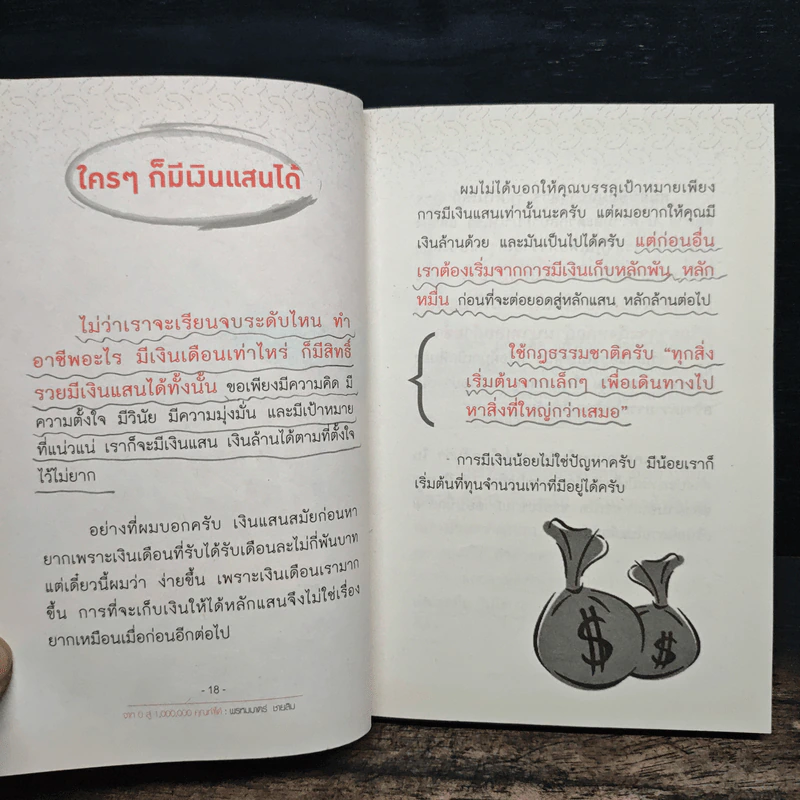 ใครๆ ก็มีเงินแสนได้
ไม่ว่าเราจะเรียนจบระดับไหน ทำ
อาชีพอะไร มีเงินเดือนเท่าไหร่ ก็มีสิทธิ์
รวยมีเงินแสนได้ทั้งนั้น ขอเพียงมีความคิด มี
ความตั้งใจ มีวินัย มีความมุ่งมั่น และมีเป้าหมาย
ที่แน่วแน่ เราก็จะมีเงินแสน เงินล้านได้ตามที่ตั้งใจ
ไว้ไม่ยาก
อย่างที่ผมบอกครับ เงินแสนสมัยก่อนหา
ยากเพราะเงินเดือนที่รับได้รับเดือนละไม่กี่พันบาท
แต่เดี๋ยวนี้ผมว่า ง่ายขึ้น เพราะเงินเดือนเรามาก
ขึ้น การที่จะเก็บเงินให้ได้หลักแสนจึงไม่ใช่เรื่อง
ยากเหมือนเมื่อก่อนอีกต่อไป
- 18 -
จาก 0 สู่ 1,000,000 คุณทำได้ :
ผมไม่ได้บอกให้คุณบรรลุเป้าหมายเพียง
การมีเงินแสนเท่านั้นนะครับ แต่ผมอยากให้คุณมี
เงินล้านด้วย และมันเป็นไปได้ครับ แต่ก่อนอื่น
เราต้องเริ่มจากการมีเงินเก็บหลักพัน หลัก
หมื่น ก่อนที่จะต่อยอดสู่หลักแสน หลักล้านต่อไป
ใช้กฎธรรมชาติครับ “ทุกสิ่ง
เริ่มต้นจากเล็กๆ เพื่อเดินทางไป
หาสิ่งที่ใหญ่กว่าเสมอ”
การมีเงินน้อยไม่ใช่ปัญหาครับ มีน้อยเราก็
เริ่มต้นที่ทุนจำนวนเท่าที่มีอยู่ได้ครับ
$
$